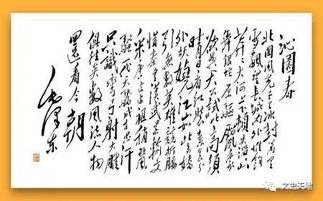 沁園春
北国风光千里冰封万里
雪飘望長城内外惟餘
莽莽大河上下頓失滔滔山
舞銀蛇原驅腊象
欲与天公試比高須
晴日看红装素裹分
外妖娆江山如此多嬌
引無數英雄競折腰
惜秦皇漢武略輸文
采唐宗宋祖稍遜風
騷一代天驕成吉思汗
只識彎弓射大雕
俱往矣數風流人物
還看今朝
毛泽东
文史天地